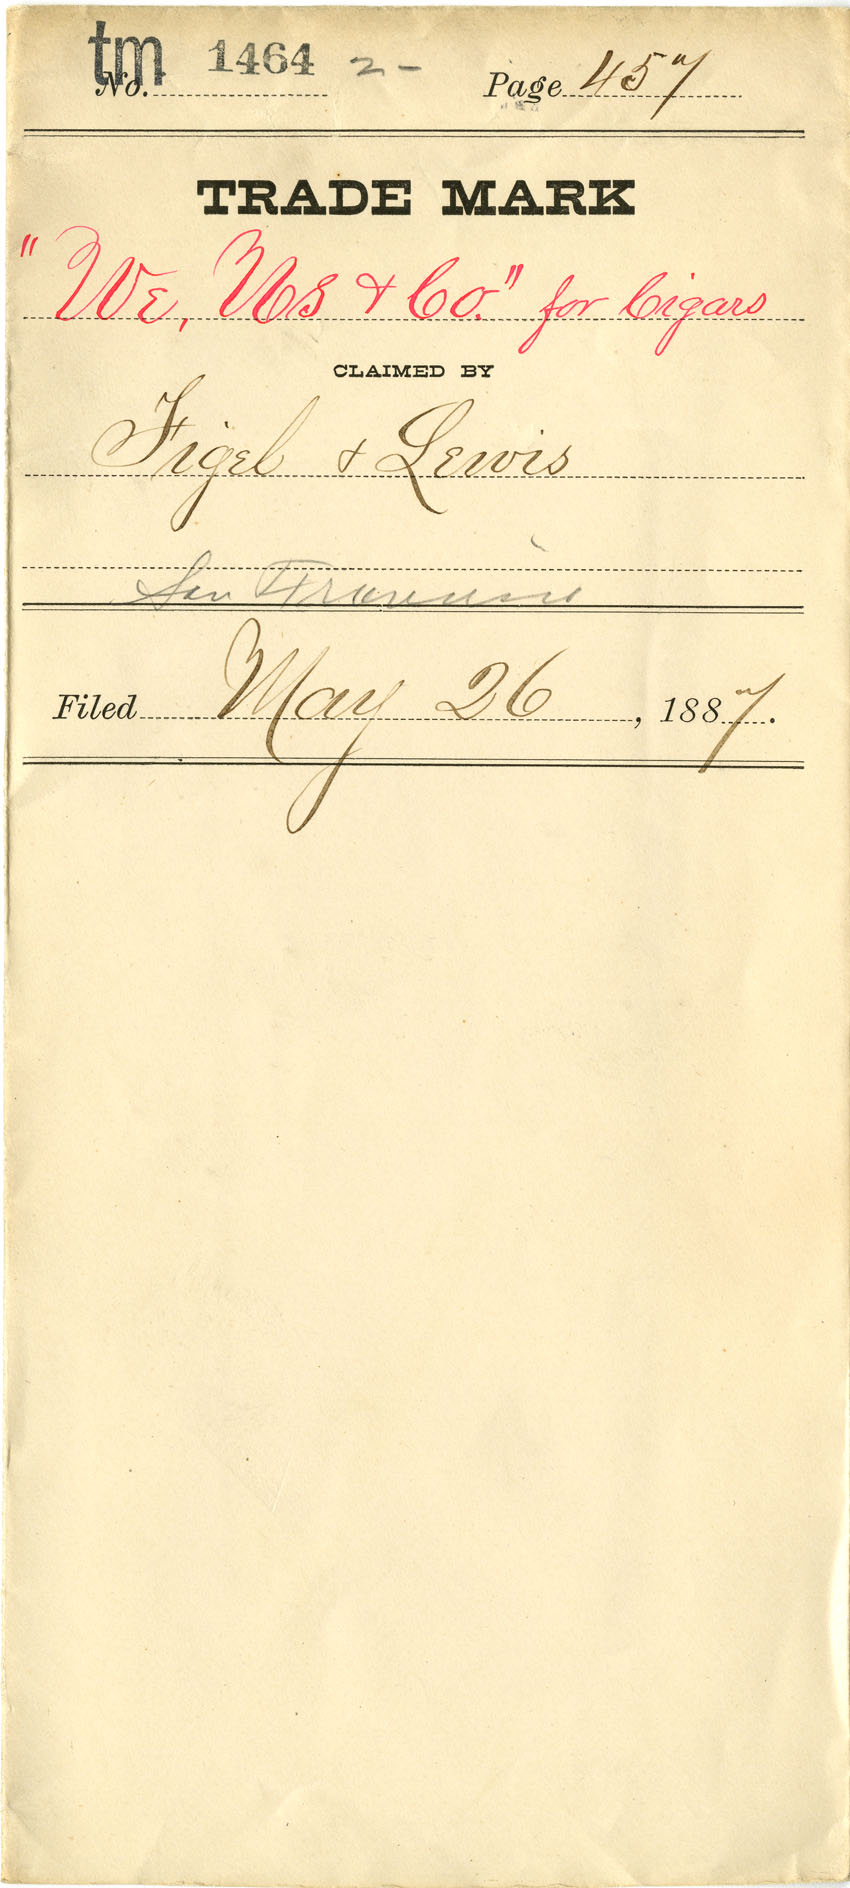 tm 1464 2-
No. Page 457
TRADE MARK
"We, Us & Co." for Cigars
CLAIMED BY
Figel & Lewis
San Francisco
Filed May 26, 1887.